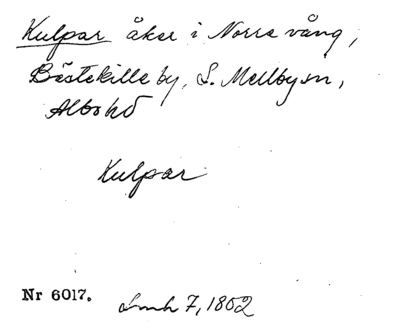 Kulpar åker i Norra vång,
Bästekille by, S. Mellby sn,
Albo hd
Kulpar
Nr 6017.
Lmh 7, 1802